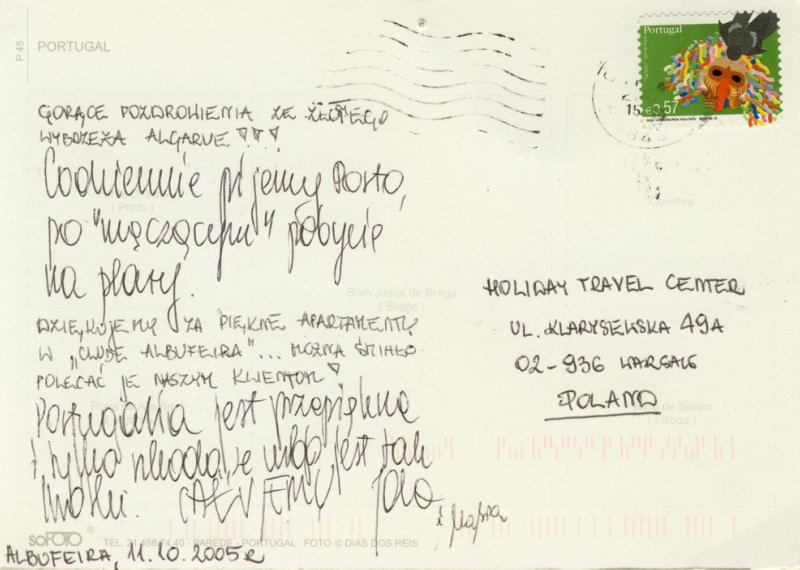 P 45
PORTUGAL
Portugal
€0,57
GORĄCE POZDROWIENIA ZE ZŁOTEGO
WYBRZEŻA ALGARVE !!!
Codziennie pijemy Porto,
po "męczącym" pobycie
na plaży.
DZIĘKUJEMY ZA PIĘKNE APARTAMENTY
W „CLUBE ALBUFEIRA"... MOŻNA ŚMIAŁO
POLECAĆ JE NASZYM KLIENTOM!
Portugalia jest przepiękna
i tylko szkoda, że urlop jest tak
krótki. CAŁUJEMY Jola
i
HOLIDAY TRAVEL CENTER
UL. KLARYSEWSKA 49A
02-936 WARSAW
POLAND
( Porto )
Coimbra
Bom Jesus de Braga
( Braga )
de Belém
( Lisboa )
soFOTO ®
TEL. 21 458 74 40 - PAREDE - PORTUGAL FOTO © DIAS DOS REIS
ALBUFEIRA, 11.10.2005 R